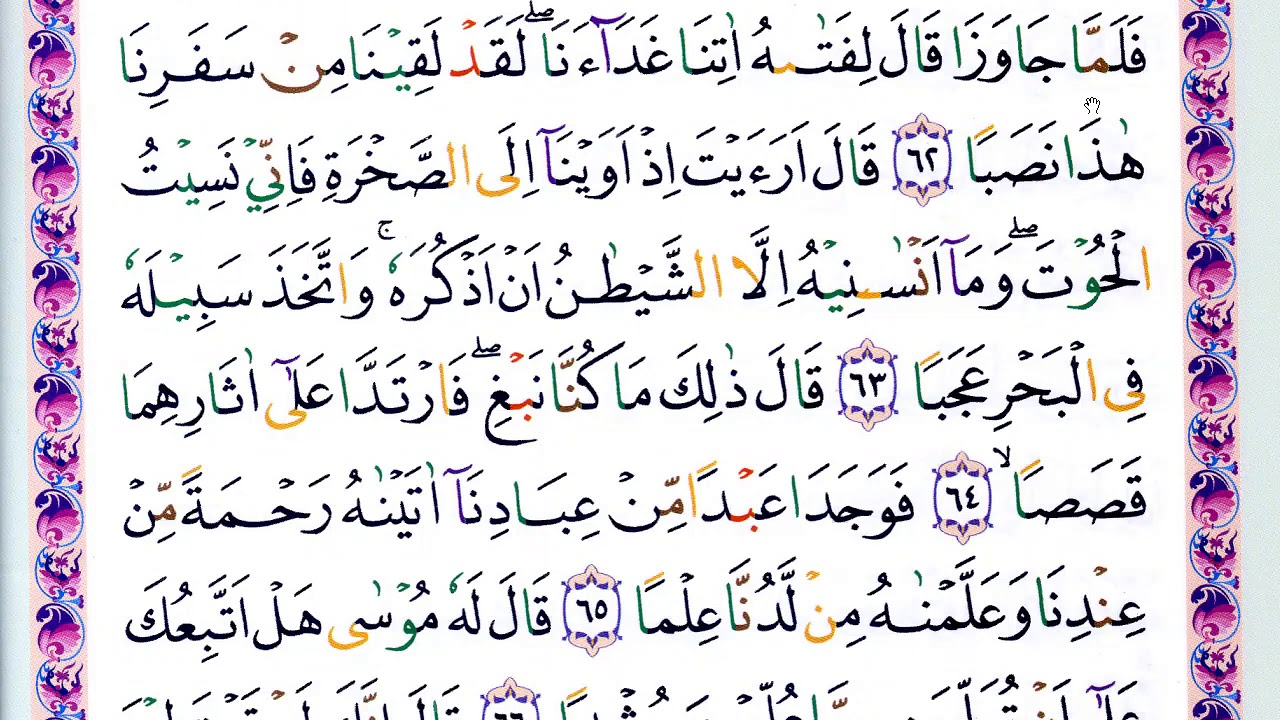 فَلَمَّا جَاوَزَا قَالَ لِفَتٰىهُ اٰتِنَا غَدَآءَنَا ۖ لَقَدْ لَقِيْنَا مِنْ سَفَرِنَا
هٰذَا نَصَبًا ٦٢ قَالَ اَرَءَيْتَ اِذْ اَوَيْنَآ اِلَى الصَّخْرَةِ فَاِنِّيْ نَسِيْتُ
الْحُوْتَ ۖ وَمَآ اَنْسٰىنِيْهُ اِلَّا الشَّيْطٰنُ اَنْ اَذْكُرَهٗ ۚ وَاتَّخَذَ سَبِيْلَهٗ
فِى الْبَحْرِ عَجَبًا ٦٣ قَالَ ذٰلِكَ مَا كُنَّا نَبْغِ ۖ فَارْتَدَّا عَلٰٓى اٰثَارِهِمَا
قَصَصًا ۙ ٦٤ فَوَجَدَا عَبْدًا مِّنْ عِبَادِنَآ اٰتَيْنٰهُ رَحْمَةً مِّنْ
عِنْدِنَا وَعَلَّمْنٰهُ مِنْ لَّدُنَّا عِلْمًا ٦٥ قَالَ لَهٗ مُوْسٰى هَلْ اَتَّبِعُكَ